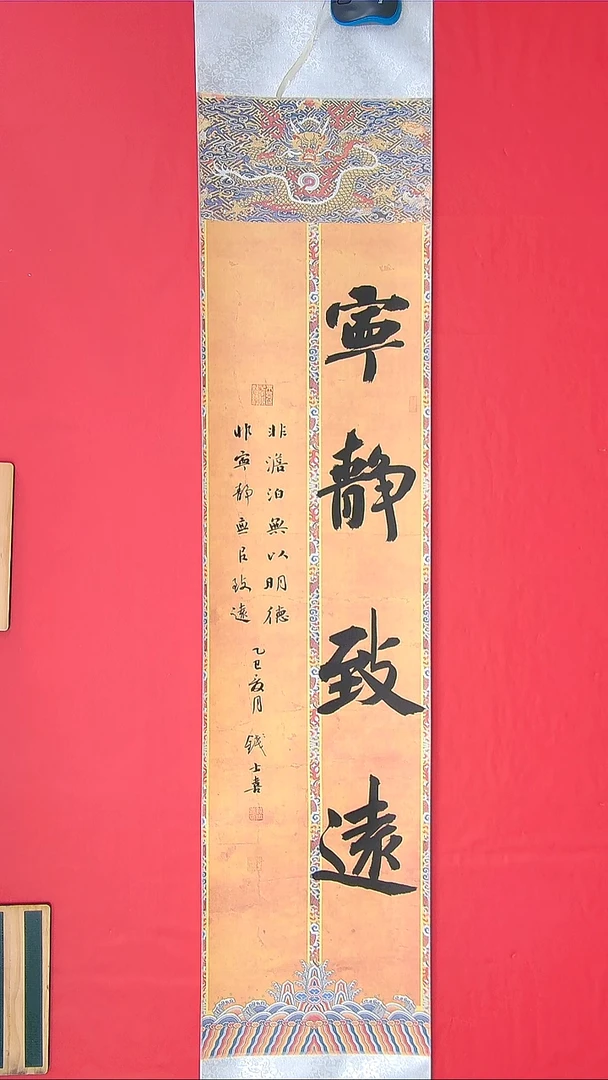 寧靜致遠
非澹泊無以明德
非寧靜無㠯致遠
乙巳
月
錢士喜